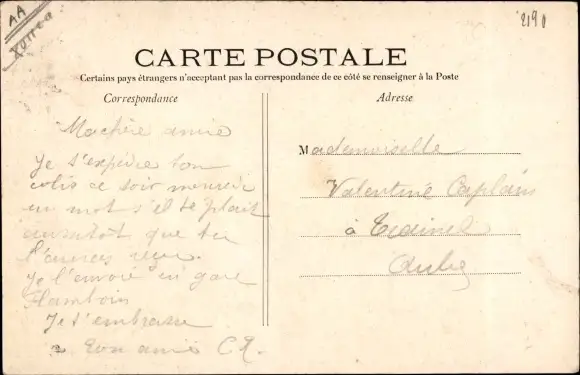 AA
2190
CARTE POSTALE
Certains pays étrangers n'acceptant pas la correspondance de ce côté se renseigner à la Poste
Correspondance
Adresse
Ma chère amie
Je t'expédie ton
colis ce soir
un mot s'il te plait
aussitôt que tu
l'auras
Je l'envoie en gare
Flamboin
Je t'embrasse
ton amie C.R.
Mademoiselle
Valentine Caplain
à Trainel
Aube